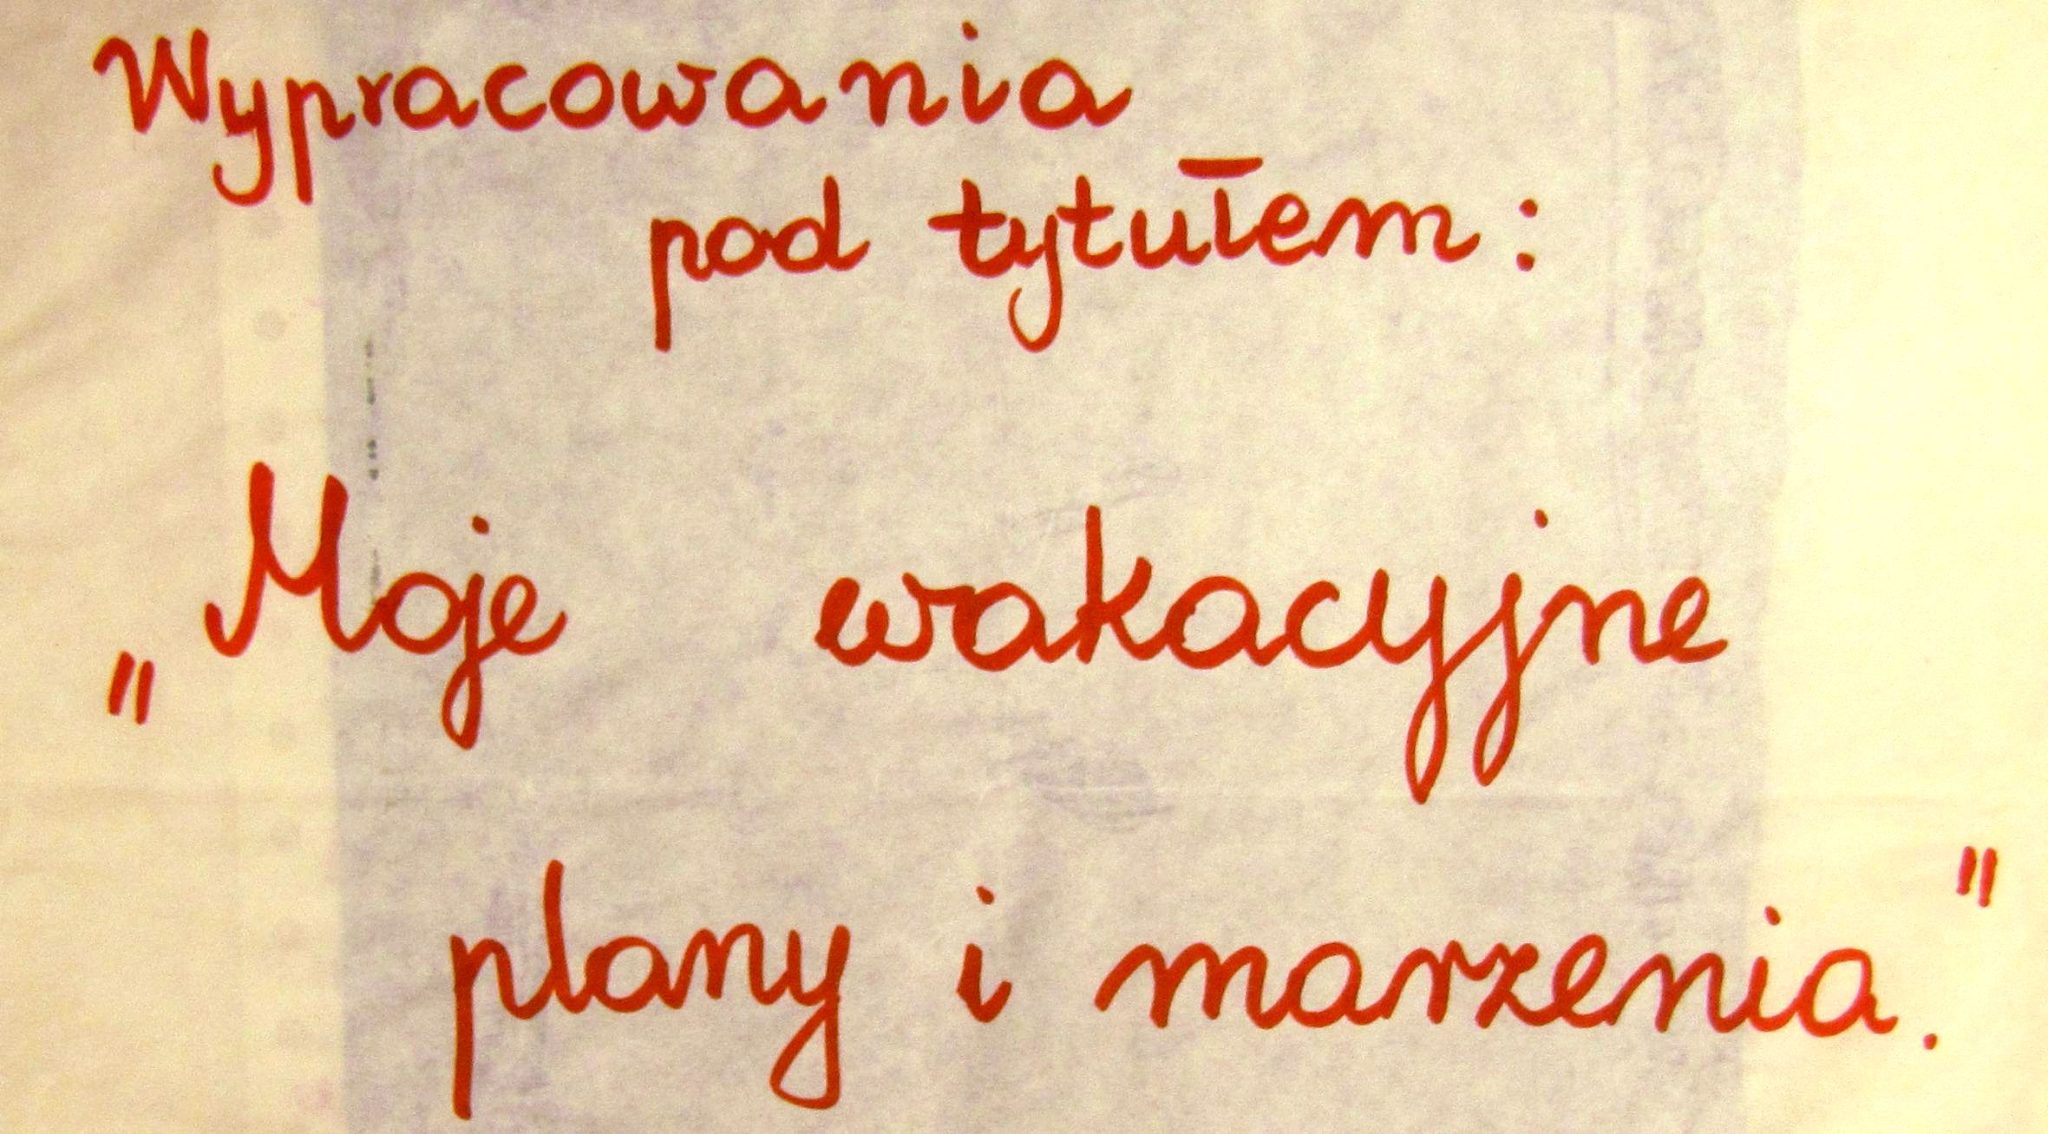 Wypracowania
pod tytułem:
„Moje wakacyjne
plany i marzenia."